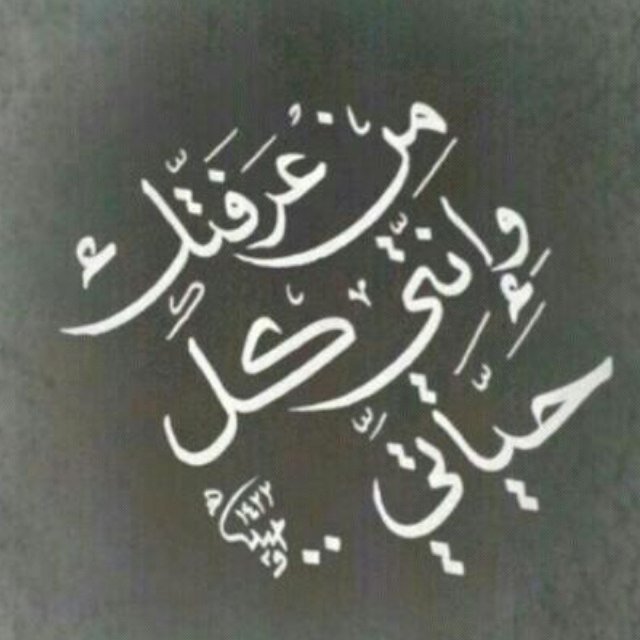 مِن عُرَفَتِّكِ
وَإِنتِّي كل
حيَّاتِّي ..
١٤٣٢